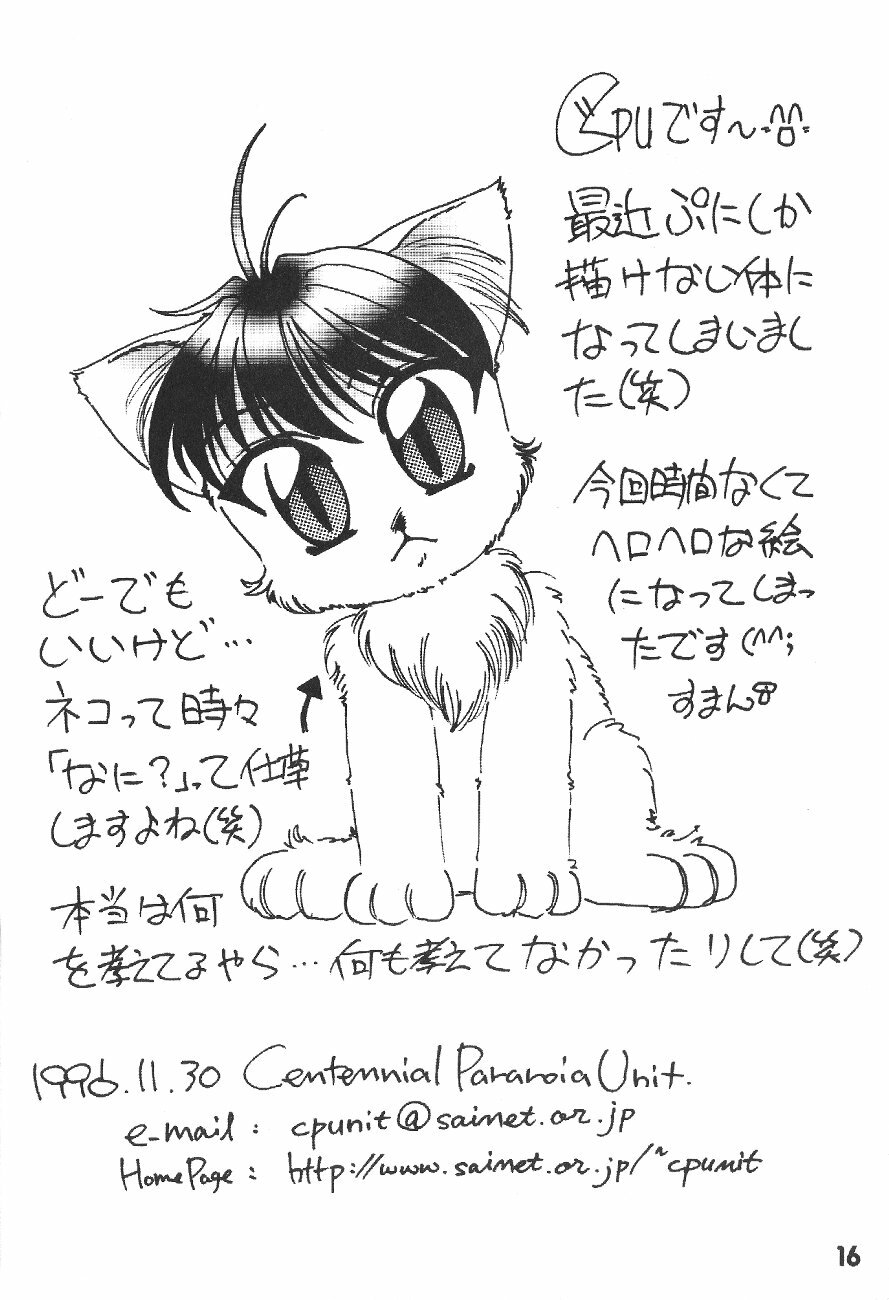 CPUです〜
最近ぷにしか
描けない体に
なってしまいまし
た(笑)
今回時間なくて
ヘロヘロな絵
になってしまっ
たです(^^;
すまん
どーでも
いいけど…
ネコって時々
「なに?」って仕草
しますよね(笑)
本当は何
を考えてるやら…何も考えてなかったりして(笑)
1996.11.30 Centennial Paranoia Unit.
e-mail : cpunit@sainet.or.jp
HomePage : http://www.sainet.or.jp/~cpunit
16